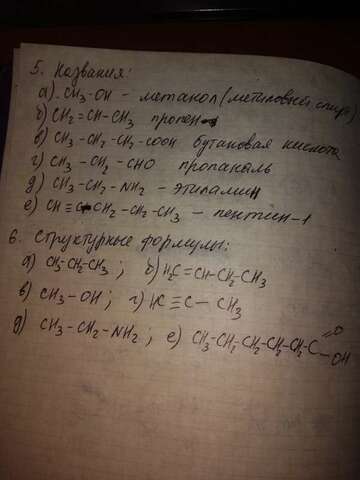 5. Названия:
а) CH3-OH - метанол (метиловый спирт)
б) CH2=CH-CH3 пропен
в) CH3-CH2-CH2-COOH бутановая кислота
г) CH3-CH2-CHO пропаналь
д) CH3-CH2-NH2 - этиламин
е) CH≡C-CH2-CH2-CH3 - пентин-1
6. Структурные формулы:
а) CH3-CH2-CH3; б) H2C=CH-CH2-CH3
в) CH3-OH; г) HC≡C-CH3
д) CH3-CH2-NH2; е) CH3-CH2-CH2-CH2-CH2-C=O
OH